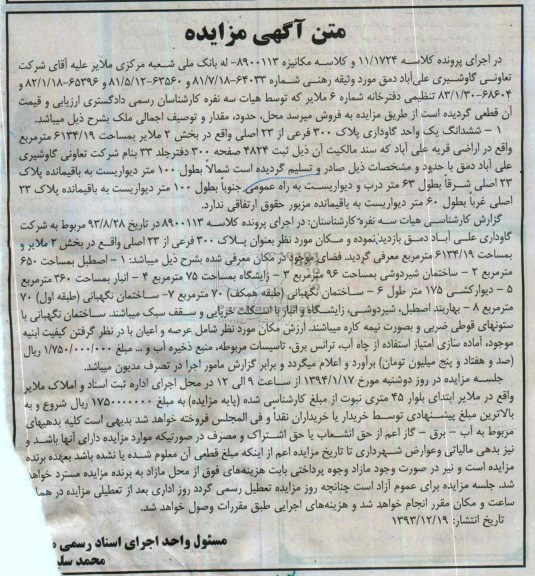 متن آگهی مزایده
در اجرای پرونده کلاسه ۱۱/۱۷۲۴ و کلاسه مکانیزه ۸۹۰۰۱۱۳- له بانک ملی شعبه مرکزی ملایر علیه آقای شرکت
تعاونی گاوشیری علی‌آباد دمق مورد وثیقه رهنی شماره ۶۴۰۳۳-۸۱/۷/۱۸ و ۶۳۵۶۰-۸۱/۵/۱۲ و ۶۵۳۹۶-۸۲/۱/۱۸ و
۶۸۶۰۴-۸۳/۱/۳۰ تنظیمی دفترخانه شماره ۶ ملایر که توسط هیات سه نفره کارشناسان رسمی دادگستری ارزیابی و قیمت
آن قطعی گردیده است از طریق مزایده به فروش میرسد محل، حدود، مقدار و توصیف اجمالی ملک بشرح ذیل میباشد.
۱ – ششدانگ یک واحد گاوداری پلاک ۳۰۰ فرعی از ۲۳ اصلی واقع در بخش ۲ ملایر بمساحت ۶۱۳۴/۱۹ مترمربع
واقع در اراضی قریه علی آباد که سند مالکیت آن ذیل ثبت ۴۸۲۴ صفحه ۳۰۰ دفترجلد ۳۳ بنام شرکت تعاونی گاوشیری
علی آباد دمق با حدود و مشخصات ذیل صادر و تسلیم گردیده است شمالاً بطول ۱۰۰ متر دیواریست به باقیمانده پلاک
۲۳ اصلی شرقاً بطول ۶۳ متر درب و دیواریست به راه عمومی جنوباً بطول ۱۰۰ متر دیواریست به باقیمانده پلاک ۲۳
اصلی غرباً بطول ۶۰ متر دیواریست به باقیمانده مزبور حقوق ارتفاقی ندارد.
گزارش کارشناسی هیات سه نفره کارشناسان: در اجرای پرونده کلاسه ۸۹۰۰۱۱۳ در تاریخ ۹۳/۸/۲۸ مربوط به شرکت
گاوداری علی آباد دمق بازدید نموده و مکان مورد نظر بعنوان پلاک ۳۰۰ فرعی از ۲۳ اصلی واقع در بخش ۲ ملایر و
بمساحت ۶۱۳۴/۱۹ مترمربع معرفی گردید. فضای موجود در مکان معرفی شده بشرح ذیل میباشد: ۱ – اصطبل بمساحت ۶۵۰
مترمربع ۲ – ساختمان شیردوشی بمساحت ۹۶ مترمربع ۳ – زایشگاه بمساحت ۷۵ مترمربع ۴ – انبار بمساحت ۳۶۰ مترمربع
۵ – دیوارکشی ۱۷۵ متر طول ۶ – ساختمان نگهبانی (طبقه همکف) ۷۰ مترمربع ۷– ساختمان نگهبانی (طبقه اول) ۷۰
مترمربع ۸ – بهاربند اصطبل، شیردوشی، زایشگاه و انبار با اسکلت خرپایی و سقف سبک میباشند. ساختمان نگهبانی با
ستونهای قوطی ضربی و بصورت نیمه کاره میباشند. ارزش مکان مورد نظر شامل عرصه و اعیان با در نظر گرفتن کیفیت ابنیه
موجود، آماده سازی امتیاز استفاده از چاه آب، ترانس برق، تاسیسات مربوطه، منبع ذخیره آب و ... مبلغ ۱/۷۵۰/۰۰۰/۰۰۰ ریال
(صد و هفتاد و پنج میلیون تومان) برآورد و اعلام میگردد و برابر گزارش مامور اجرا در تصرف مدیون میباشد.
جلسه مزایده در روز دوشنبه مورخ ۱۳۹۴/۱/۱۷ از ساعت ۹ الی ۱۲ در محل اجرای اداره ثبت اسناد و املاک ملایر
واقع در ملایر ابتدای بلوار ۴۵ متری نبوت از مبلغ کارشناسی شده (پایه مزایده) به مبلغ ۱۷۵۰۰۰۰۰۰۰ ریال شروع و به
بالاترین مبلغ پیشنهادی توسط خریدار یا خریداران نقداً و فی المجلس فروخته خواهد شد بدیهی است کلیه بدهیهای
مربوط به آب – برق – گاز اعم از حق انشعاب یا حق اشتراک و مصرف در صورتیکه موارد مزایده دارای آنها باشد و
نیز بدهی مالیاتی وعوارض شهرداری تا تاریخ مزایده اعم از اینکه مبلغ قطعی آن معلوم شده یا نشده باشد بعهده برنده
مزایده است و نیز در صورت وجود مازاد وجوه پرداختی بابت هزینه‌های فوق از محل مازاد به برنده مزایده مسترد خواهد
شد. جلسه مزایده برای عموم آزاد است چنانچه روز مزایده تعطیل رسمی گردد روز اداری بعد از تعطیلی مزایده در هما
ساعت و مکان مقرر انجام خواهد شد و هزینه‌های اجرایی طبق مقررات وصول خواهد شد.
تاریخ انتشار: ۱۳۹۳/۱۲/۱۹
مسئول واحد اجرای اسناد رسمی
محمد